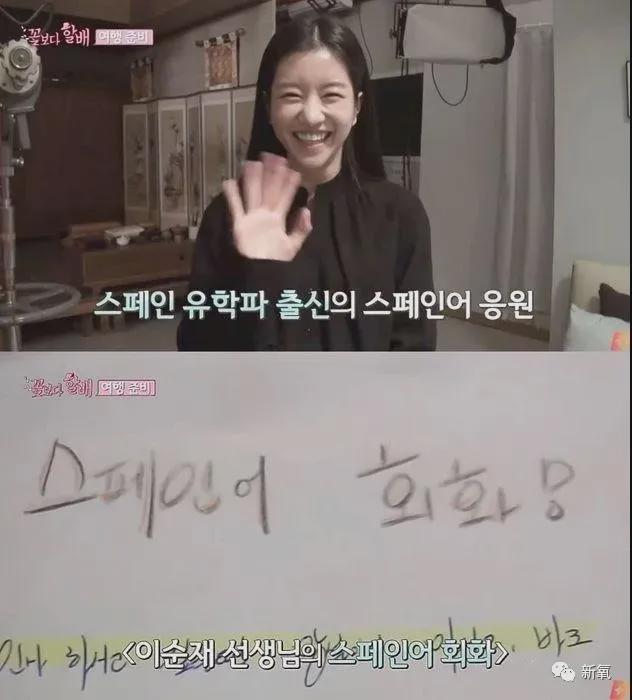 꽃보다할배 여행 준비
스페인 유학파 출신의 스페인어 응원
꽃보다할배 여행 준비
스페인어 회화
하시고
<이순재 선생님의 스페인어 회화>
바로
新氧